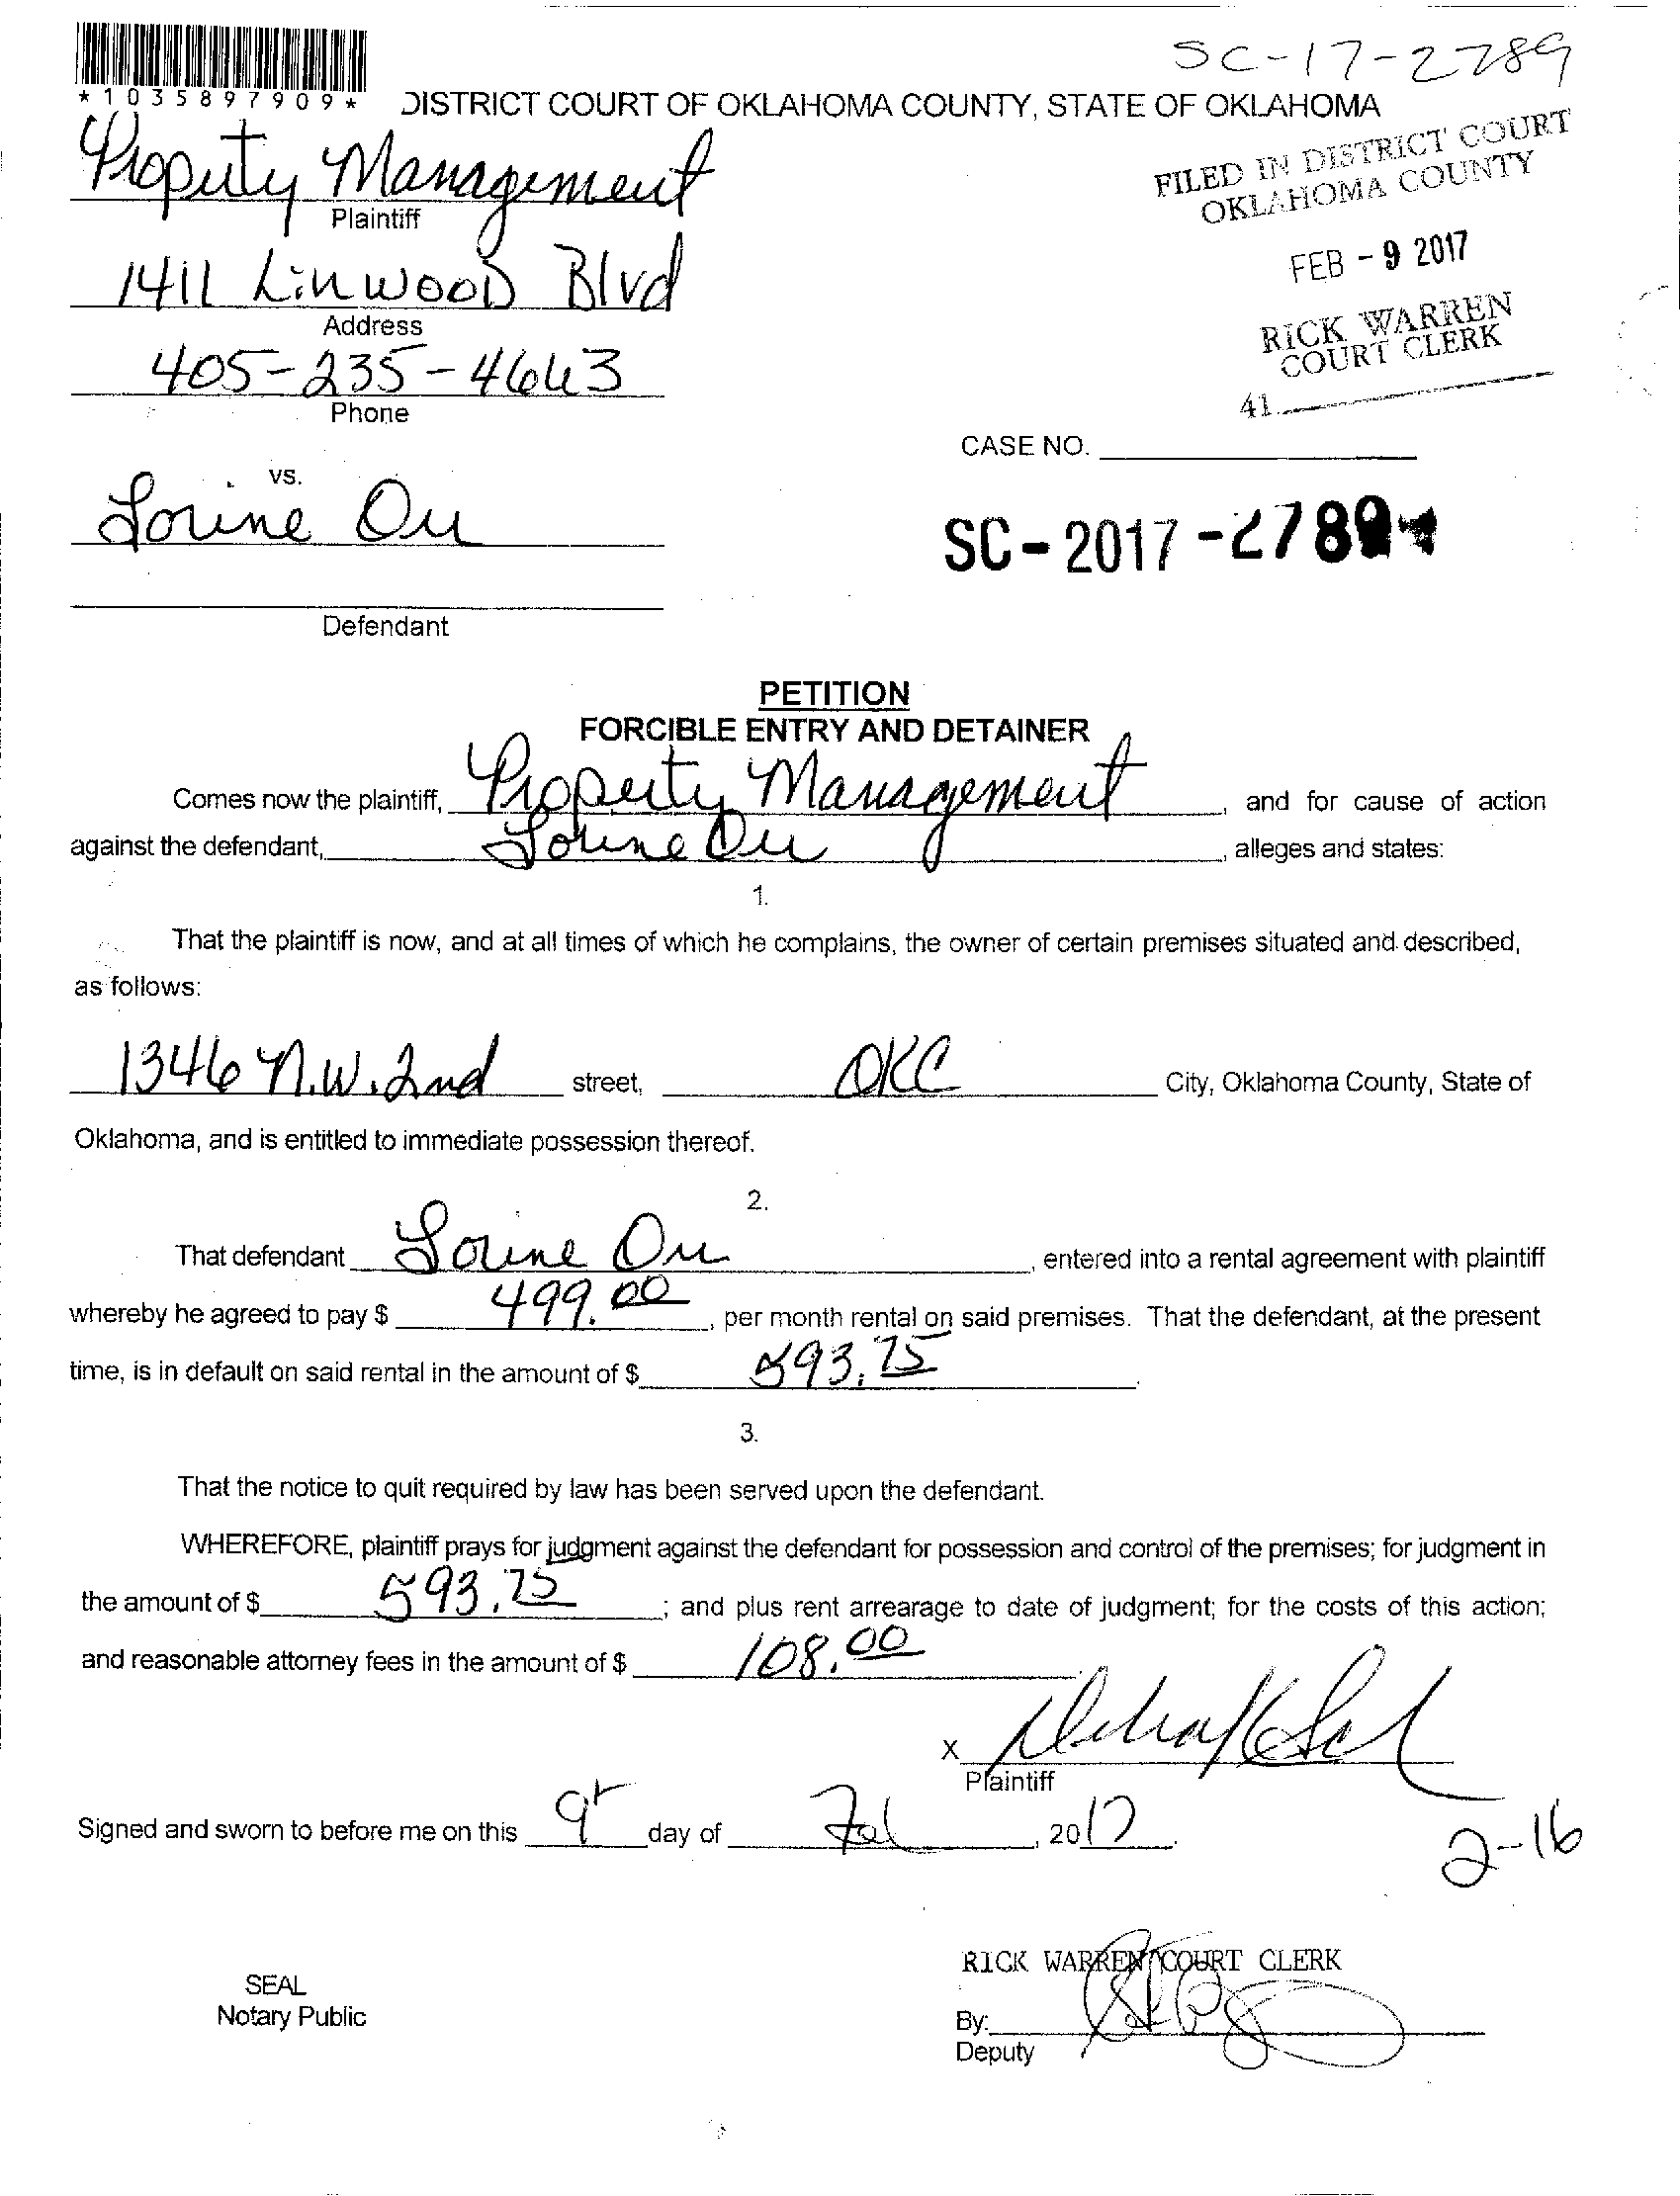 SC-17-2789
*1035897909*
DISTRICT COURT OF OKLAHOMA COUNTY, STATE OF OKLAHOMA
Property Management
Plaintiff
FILED IN DISTRICT COURT
OKLAHOMA COUNTY
FEB - 9 2017
RICK WARREN
COURT CLERK
41
1411 Linwood Blvd
Address
405-235-4643
Phone
CASE NO.
vs.
SC - 2017 - 2789
Defendant
PETITION
FORCIBLE ENTRY AND DETAINER
Comes now the plaintiff, Property Management, and for cause of action
against the defendant, alleges and states:
1.
That the plaintiff is now, and at all times of which he complains, the owner of certain premises situated and described,
as follows:
1346 N.W. 2nd street, OKC City, Oklahoma County, State of
Oklahoma, and is entitled to immediate possession thereof.
2.
That defendant , entered into a rental agreement with plaintiff
whereby he agreed to pay $ 499.00, per month rental on said premises. That the defendant, at the present
time, is in default on said rental in the amount of $ 593.75.
3.
That the notice to quit required by law has been served upon the defendant.
WHEREFORE, plaintiff prays for judgment against the defendant for possession and control of the premises; for judgment in
the amount of $ 593.75; and plus rent arrearage to date of judgment; for the costs of this action;
and reasonable attorney fees in the amount of $ 108.00
X
Plaintiff
Signed and sworn to before me on this 9 day of Feb, 2017.
2-16
RICK WARREN COURT CLERK
SEAL
Notary Public
By:
Deputy